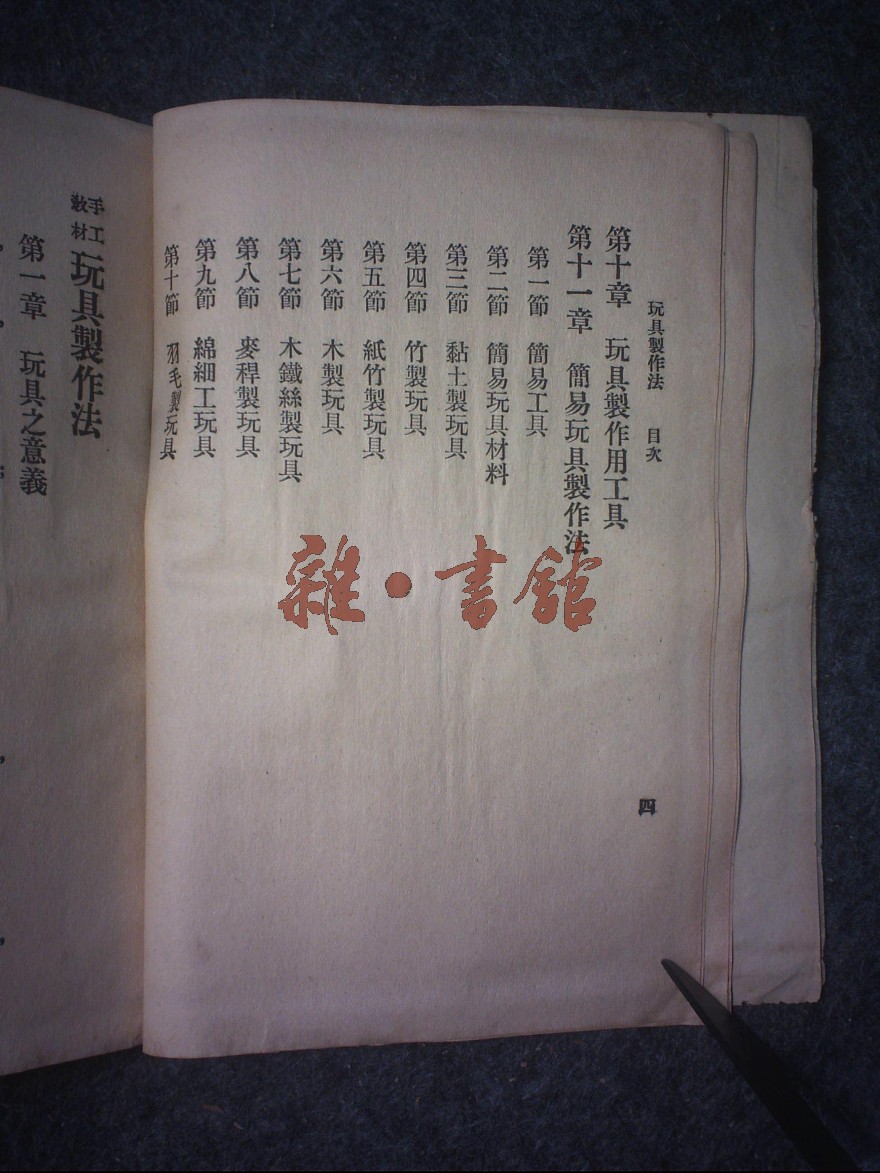 玩具製作法　目次
第十章　玩具製作用工具
第十一章　簡易玩具製作法
第一節　簡易工具
第二節　簡易玩具材料
第三節　黏土製玩具
第四節　竹製玩具
第五節　紙竹製玩具
第六節　木製玩具
第七節　木鐵絲製玩具
第八節　麥稈製玩具
第九節　綿細工玩具
第十節　羽毛製玩具
四
手工教材玩具製作法
第一章　玩具之意義
雜·書館